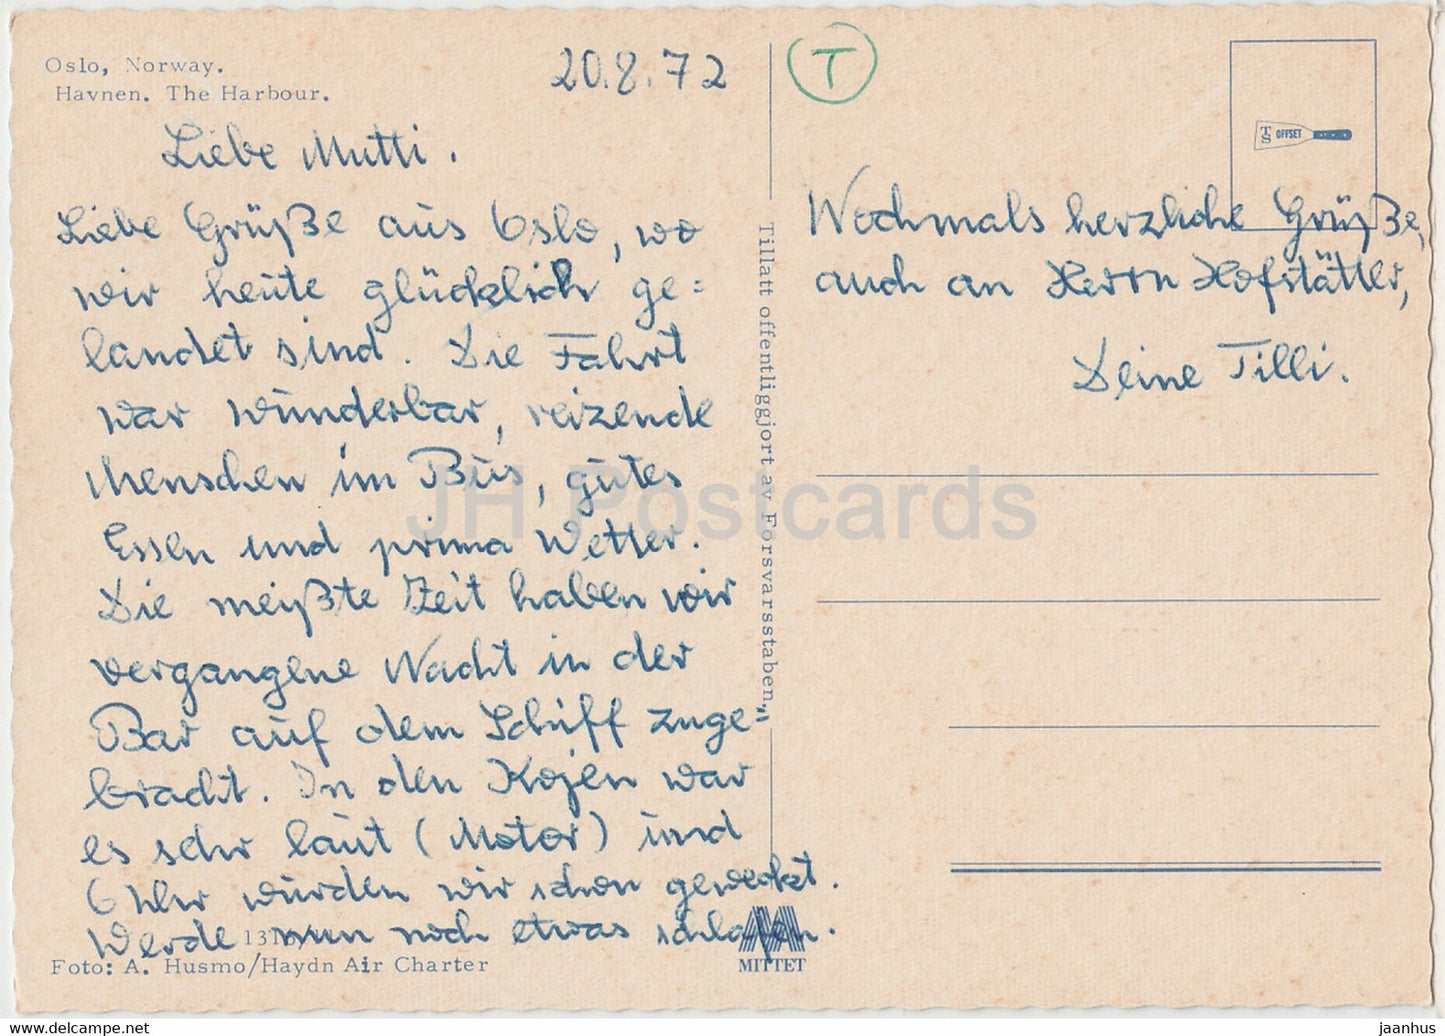 Oslo, Norway.
Havnen. The Harbour.
20.8.72
T
TS OFFSET
Liebe Mutti.
Liebe Grüße aus Oslo, wo
wir heute glücklich ge=
landet sind. Die Fahrt
war wunderbar, reizende
Menschen im Bus, gutes
Essen und prima Wetter.
Die meißte Zeit haben wir
vergangene Nacht in der
Bar auf dem Schiff zuge=
bracht. In den Kojen war
es sehr laut (Motor) und
6 Uhr wurden wir schon geweckt.
Werde nun noch etwas schlafen.
Foto: A. Husmo/Haydn Air Charter
Tillatt offentliggjort av Forsvarsstaben.
MITTET
Nochmals herzliche Grüße,
auch an Herrn Hofstätter,
Deine Tilli.
JH Postcards
jaanhus
https://www.jh-postcards.com